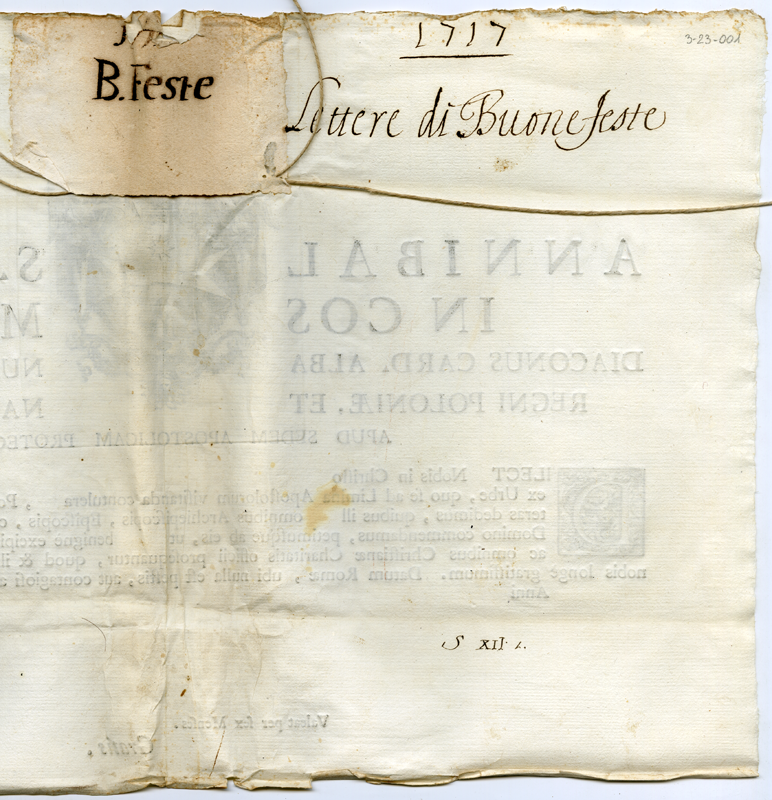 1717
3-23-001
B. Feste
Lettere di Buone feste
ANNIBAL S.
IN COS M
DIACONUS CARD. ALBA NU
REGNI POLONIÆ, ET NA
APUD SEDEM APOSTOLICAM PROTEC
DILECT Nobis in Christo
ex Urbe, quo se ad Limina Apostolorum visitanda contulera , Po
teras dedimus, quibus ill omnibus Archiepiscopis, Episcopis,
Domino commendamus, petimusque ab eis, ut benigne excipi
ac omnibus Christianæ Charitatis officii prosequantur, quod & il
nobis longè gratissimum. Datum Romæ, ubi nulla est pestis, aut contagiosi
Anni
S XII. 1.
Valeat per sex Menses.
Gratis,